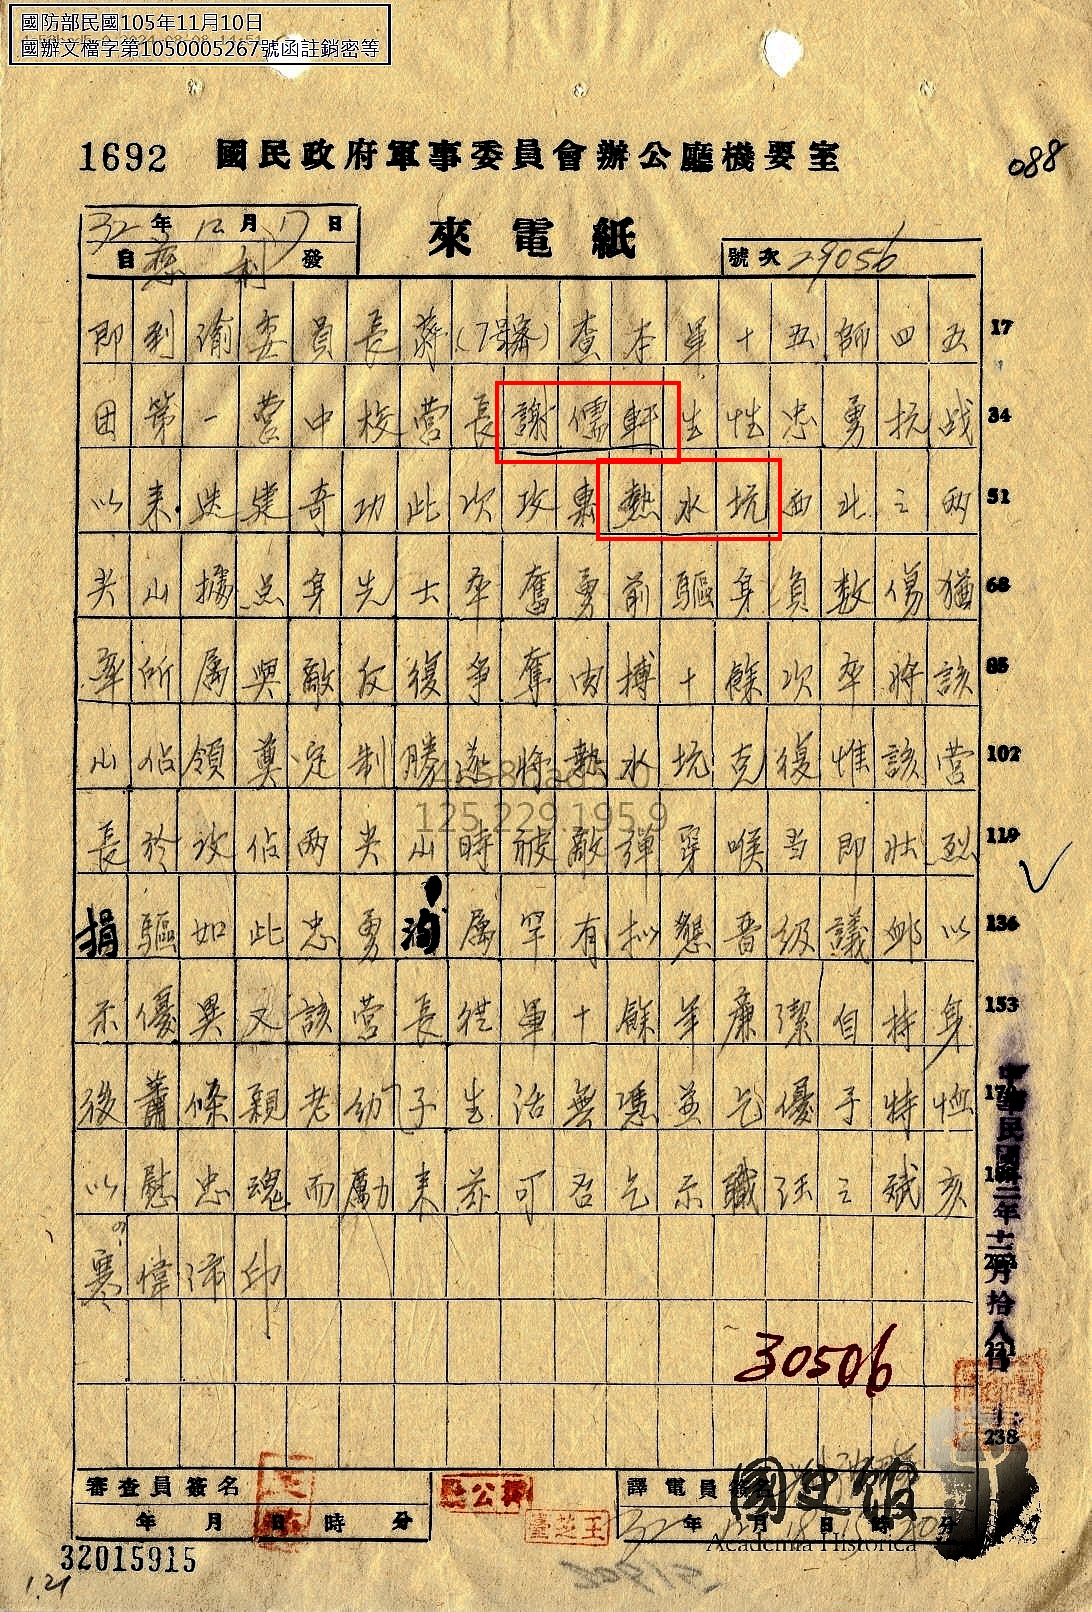 國防部民國105年11月10日
國辦文檔字第1050005267號函註銷密等
1692 國民政府軍事委員會辦公廳機要室
088
32年12月17日
自慈利發
來電紙
號次 29056
即到渝委員長蔣(7號密)查本軍十五師四五 17
团第一营中校营長謝儒軒生性忠勇抗战 34
以来迭建奇功此次攻襲熱水坑西北之两 51
尖山據点身先士卒奮勇前驅身負数傷猶 68
率所属與敵反復爭奪肉搏十餘次卒将該 85
山佔領奠定制勝並将熱水坑克復惟該营 102
長於攻佔两尖山時被敵彈穿喉当即壮烈 119
捐驅如此忠勇洵属罕有拟懇晋级議卹以 136
示優異又該营長從軍十餘年廉潔自持身 153
後蕭條親老幼子生活無憑並乞優予特恤
以慰忠魂而勵来茲可否乞示職汪之斌亥
寒偉沛印
4b58bad5-0
125.229.195.9
30506
238
中華民國卅二年十二月拾八日
審查員簽名
年 月 日 時 分
譯電員簽名
32年12月18日15時20分
國史館
Academia Historica
32015915
1.21